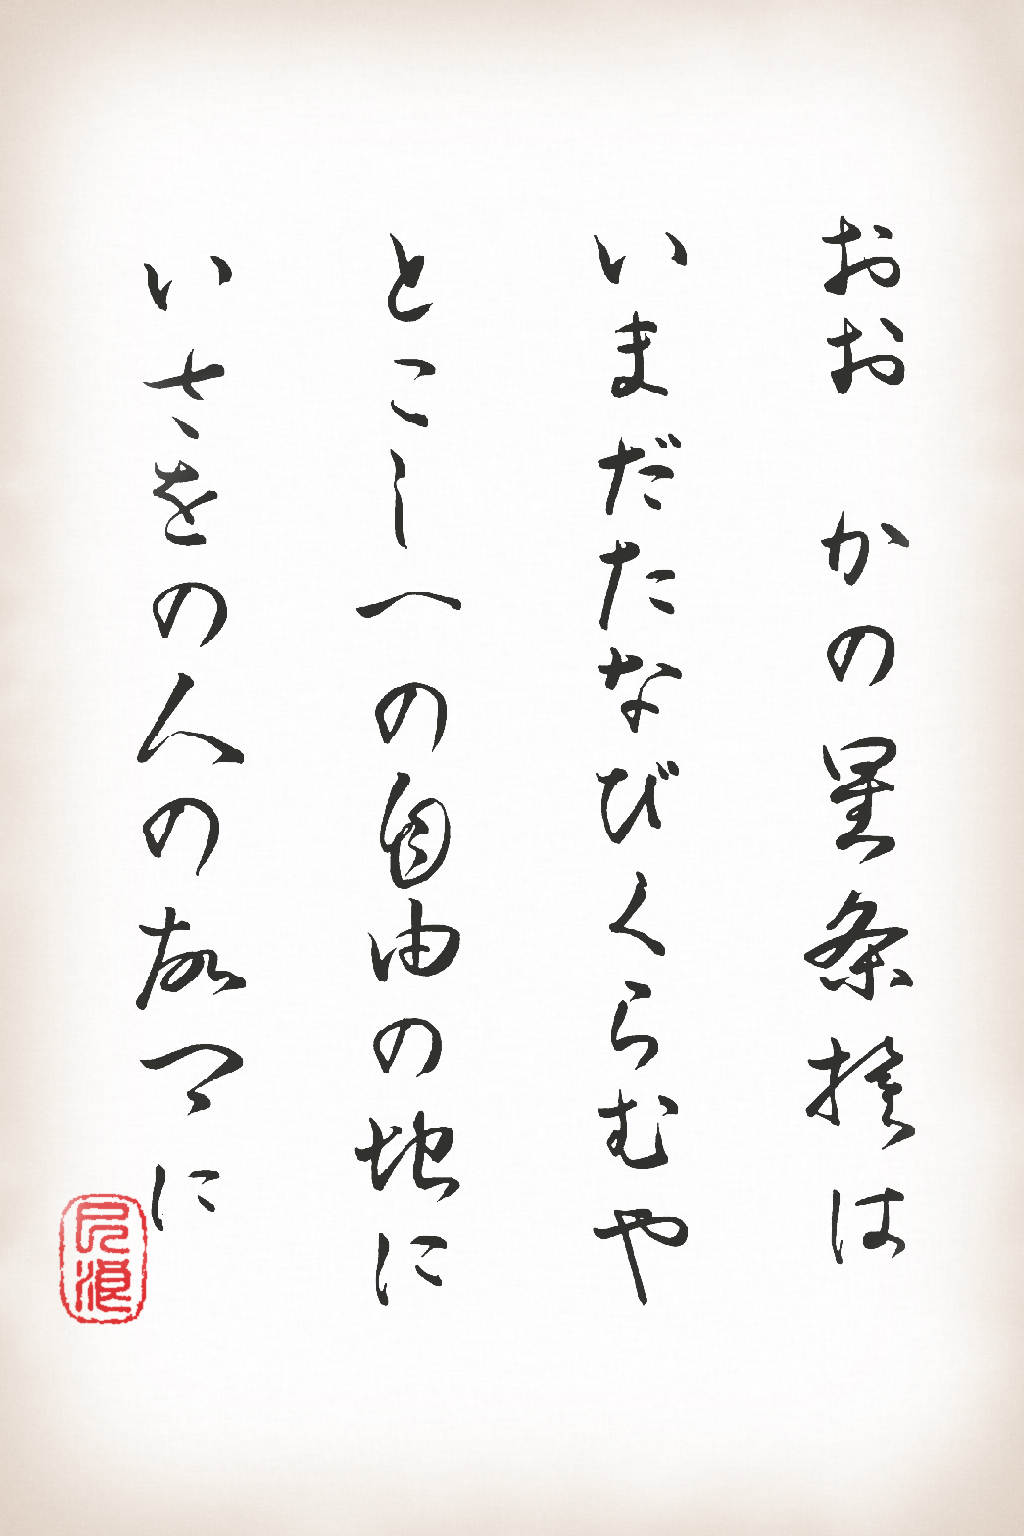 おお かの星条旗は
いまだたなびくらむや
とこしへの自由の地に
いさをの人の故国に